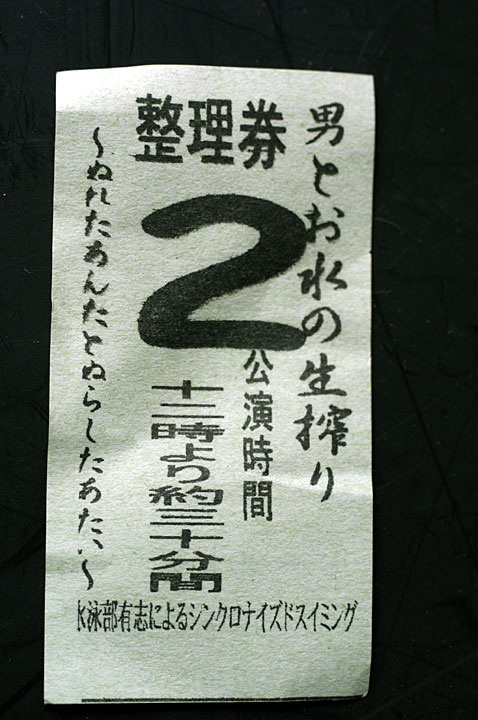 男とお水の生搾り
整理券
2
公演時間
十二時より約三十分間
〜ぬれたあんたとぬらしたあたい〜
水泳部有志によるシンクロナイズドスイミング